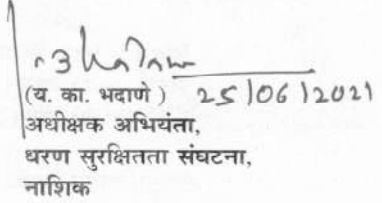 (य. का. भदाणे ) 25/06/2021
अधीक्षक अभियंता,
धरण सुरक्षितता संघटना,
नाशिक